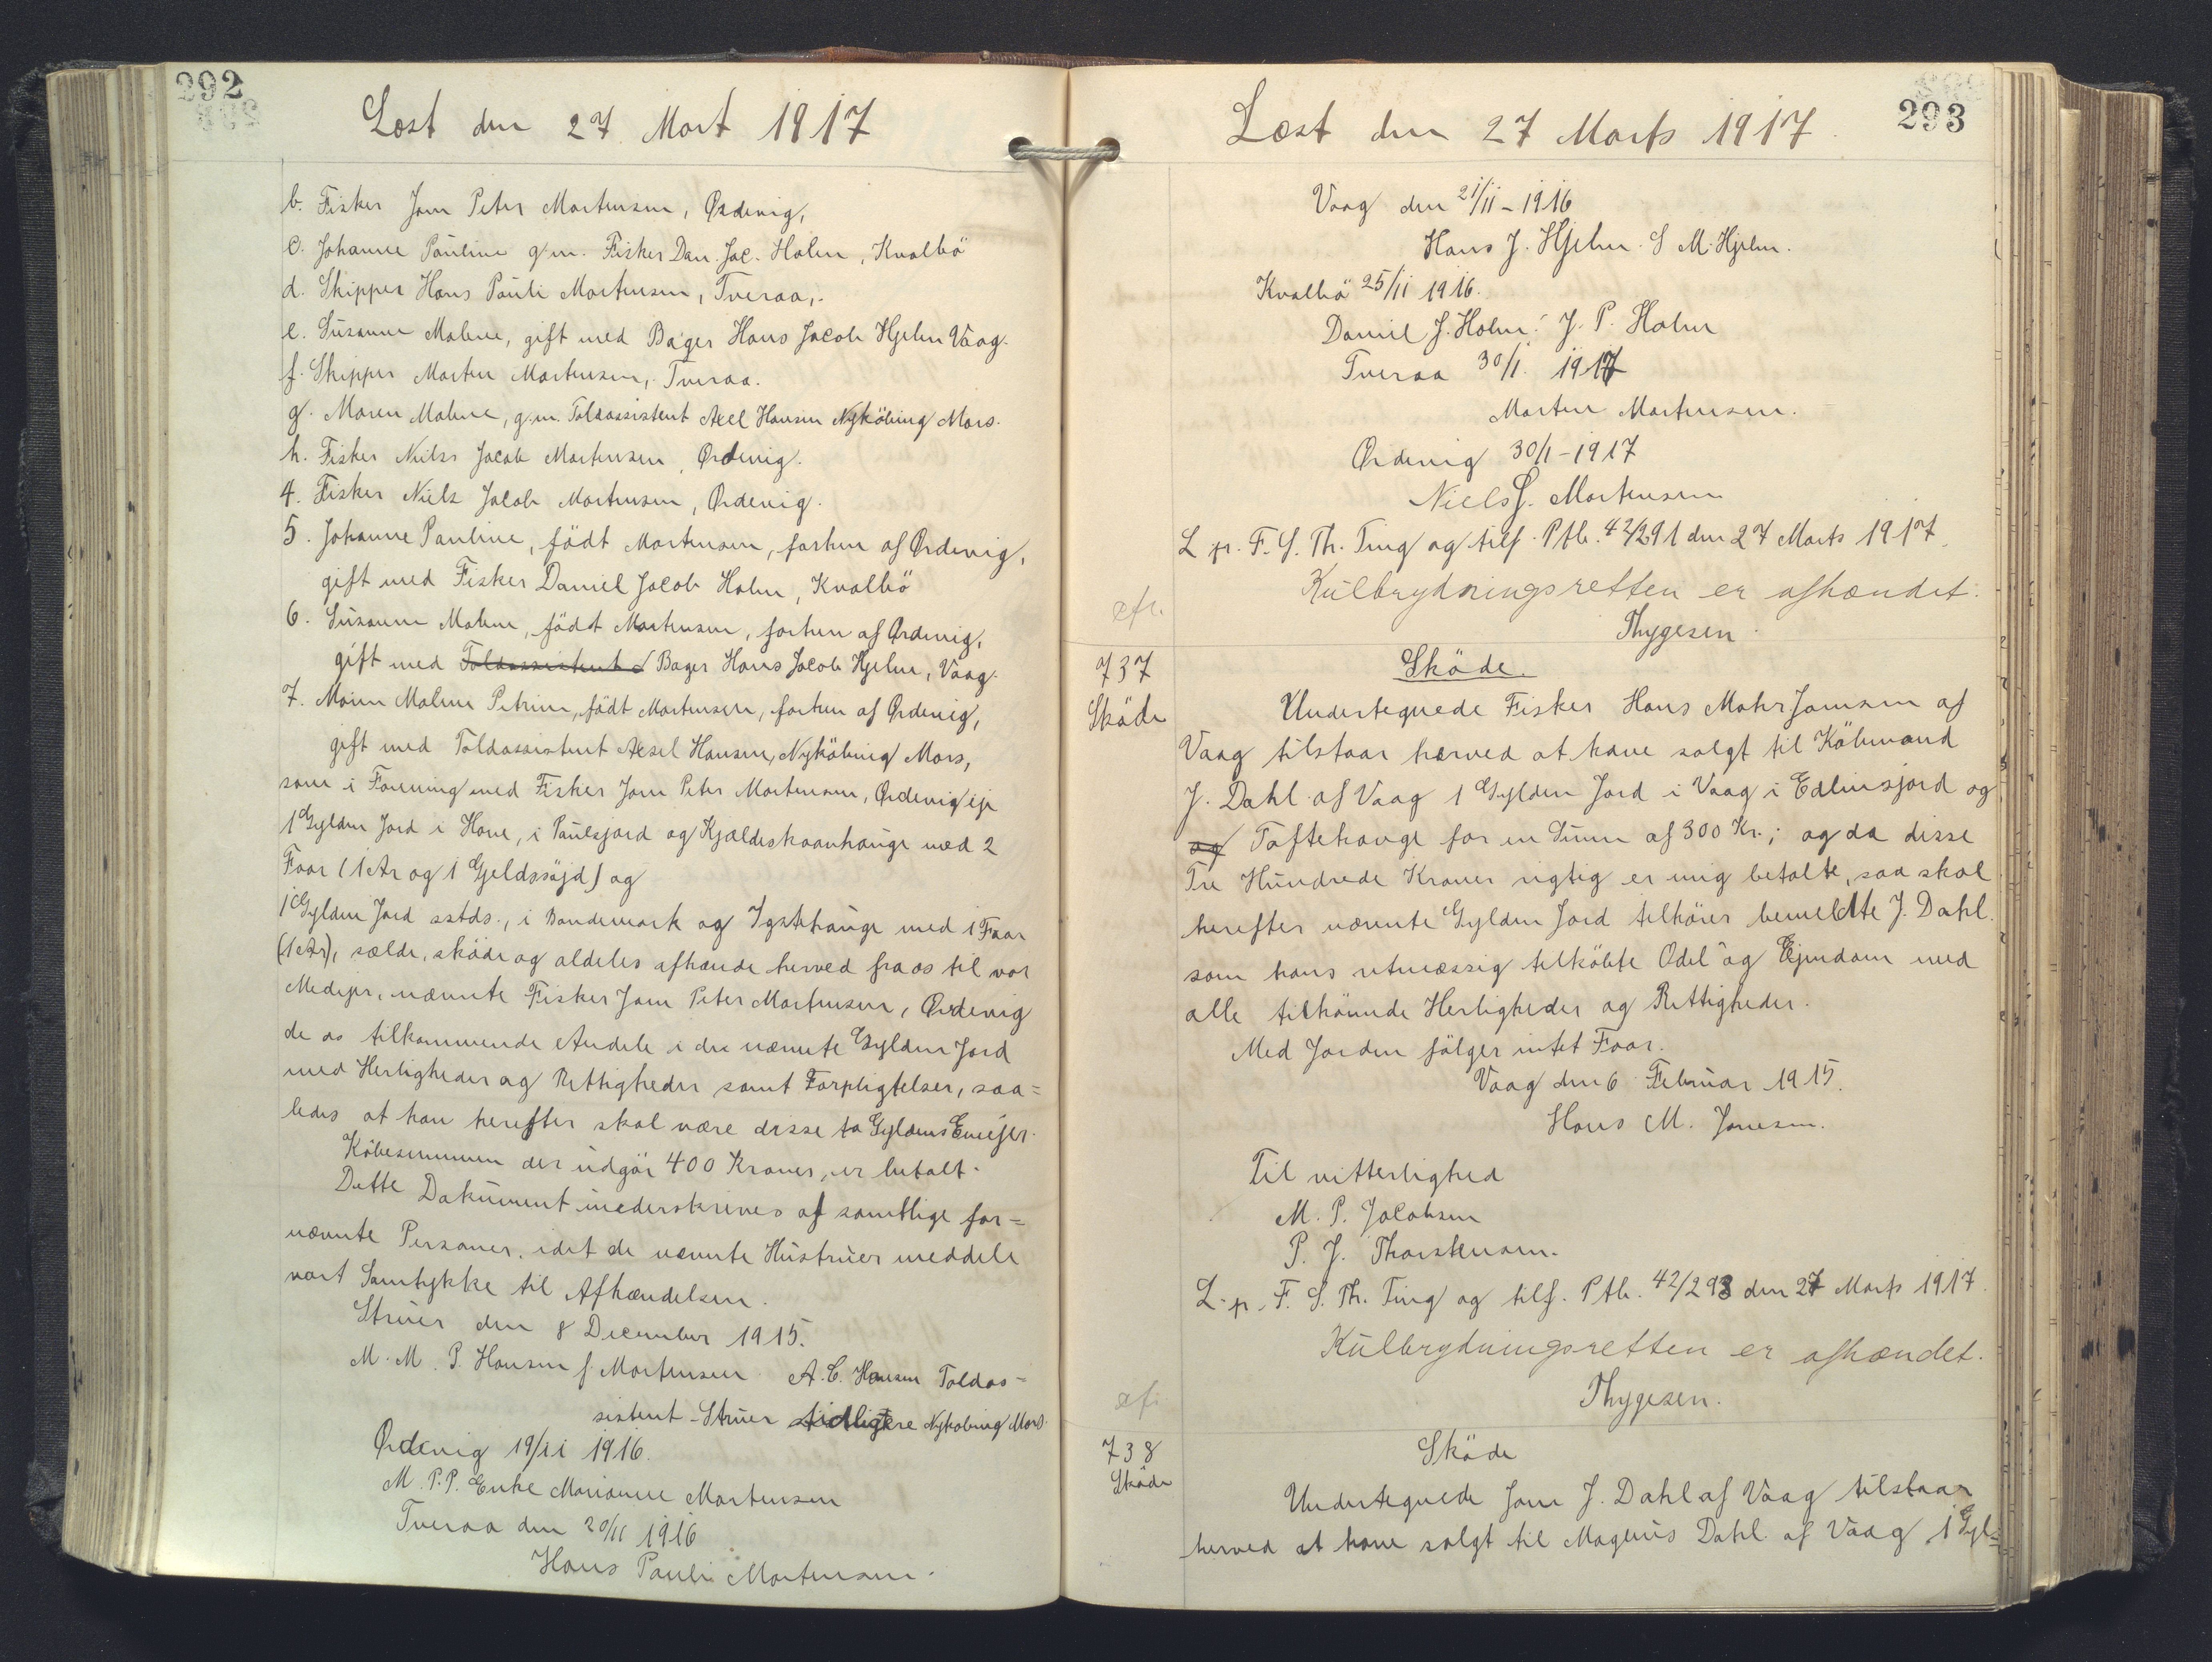 292
Læst den 27. Mart 1917
b. Fisker Joen Peter Mortensen, Ørdevig,
c. Johanne Pauline g. m. Fisker Dan. Jac. Holm, Kvalbö
d. Skipper Hans Pauli Mortensen, Tveraa,.
e. Susanne Malene, gift med Bager Hans Jacob Hjelm Vaag.
f. Skipper Morten Mortensen, Tveraa.
g. Maren Malene, g.m. Toldassistent Axel Hansen Nyköbing Mors.
h. Fisker Niels Jacob Mortensen, Ørdevig.
4. Fisker Niels Jacob Mortensen, Ørdevig.
5. Johanne Pauline, födt Mortensen, forhen af Ørdevig,
gift med Fisker Daniel Jacob Holm, Kvalbö
6. Susanne Malene, födt Mortensen, forhen af Ørdevig,
gift med Toldassistent Bager Hans Jacob Hjelm, Vaag.
7. Maren Malene Petrine, födt Mortensen, forhen af Ørdevig,
gift med Toldassistent Aksel Hansen, Nyköbing Mors,
som i Forening med Fisker Joen Peter Mortensen, Ørdevig eje
1 Gylden Jord i Hove, i Paulsjord og Kjældeskaanhauge med 2
Faar (1 Ar og 1 Gjeldsöjd) og
1 Gylden Jord sstds., i Bondemark og Igstehauge med 1 Faar
(1 Ar), sælde, sköde og aldeles afhænde herved fra os til vor
Medejer, nævnte Fisker Joen Peter Mortensen, Ørdevig
de os tilkommende Andele i de nævnte Gylden Jord
med Herligheder og Rettigheder samt Forpligtelser, saa=
ledes at han herefter skal være disse to Gyldens Eneejer.
Köbesummen der udgör 400 Kroner, er betalt.
Dette Dokument underskrives af samtlige for=
nævnte Personer, idet de nævnte Hustruer meddele
vort Samtykke til Afhændelsen.
Struer den 8 December 1915.
M. M. P. Hansen f. Mortensen A. C. Hansen Toldas=
sistent - Struer tidligere Nykobing Mors.
Ørdevig 19/11 1916.
M. P. P. Enke Marianne Mortensen
Tveraa den 20/11 1916
Hans Pauli Mortensen.
293
Læst den 27 Marts 1917.
Vaag den 21/11 - 1916
Hans J. Hjelm. S M. Hjelm.
Kvalbö 25/11 1916.
Daniel J. Holm. J. P. Holm
Tveraa 30/1. 1917
Morten Mortensen.
Ørdevig 30/1 - 1917
Niels J. Mortensen
L pr. F. S. Th. Ting og tilf. Ptb. 42/291 den 27 Marts 1917.
Kulbrydningsretten er afhændet.
Thygesen.
737
Sköde
Sköde.
Undertegnede Fisker Hans Mohr Joensen af
Vaag tilstaar herved at have solgt til Köbmand
J. Dahl af Vaag 1 Gylden Jord i Vaag i Edlinsjord og
og Toftehauge for en Sum af 300 Kr.; og da disse
Tre Hundrede Kroner rigtig er mig betalte, saa skal
herefter nævnte Gylden Jord tilhörer bemeldte J. Dahl.
som hans retmæssig tilköbte Odel og Ejendom med
alle tilhörende Herligheder og Rettigheder.
Med Jorden fölger intet Faar.
Vaag den 6 Februar 1915.
Hans M. Joensen.
Til vitterlighed
M. P. Jacobsen
P. J. Thorstensen.
L. p. F. S. Th. Ting og tilf. Ptb. 42/293 den 27 Marts 1917.
Kulbrydningsretten er afhændet.
Thygesen.
738
Sköde
Sköde
Undertegnede Joen J. Dahl af Vaag tilstaar
herved at have solgt til Magnus Dahl af Vaag 1 Gyl=